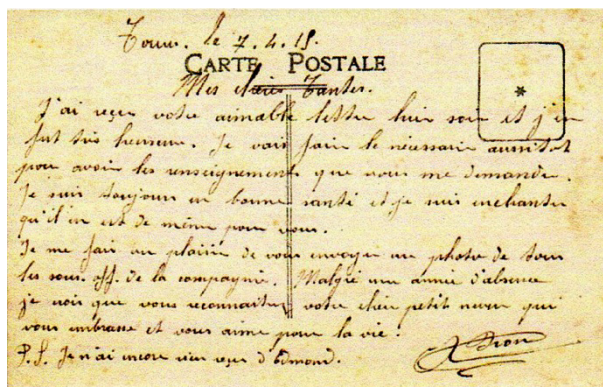 le 7.4.15.
CARTE POSTALE
Mes chères Tantes.
J'ai reçu votre aimable lettre hier soir et j'en
fut très heureux. Je vais faire le nécessaire aussitôt
pour avoir les renseignements que vous me demande.
Je suis toujours en bonne santé et je suis enchanter
qu'il en est de même pour vous.
Je me fais un plaisir de vous envoyer un photo de tous
les sous. off. de la compagnie. Malgré une année d'absence
je vois que vous reconnaitrer votre cher petit neveu qui
vous embrasse et vous aime pour la vie.
P.S. Je n'ai encore rien reçu d'Edmond.